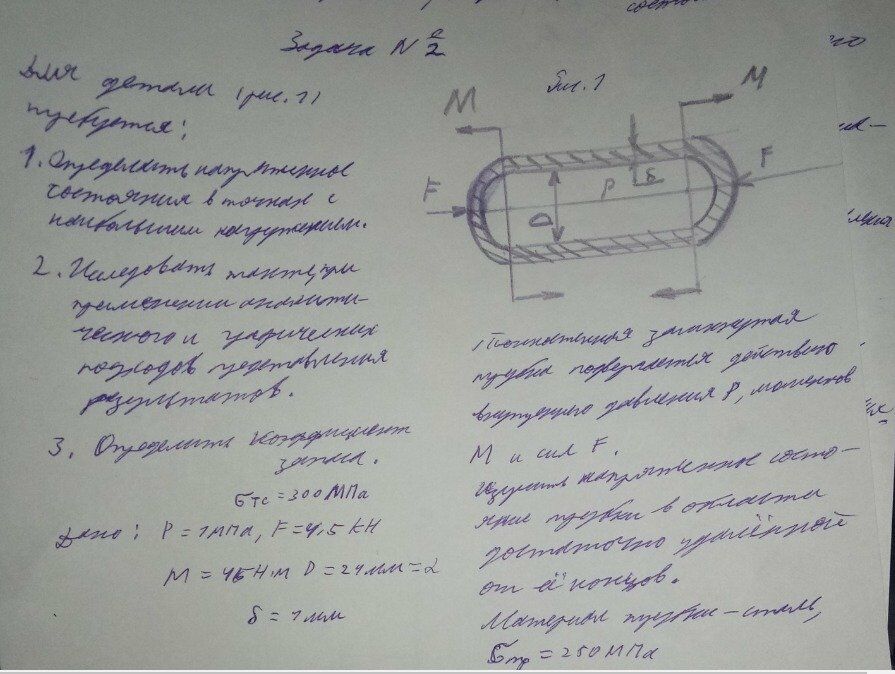 Задача N 2
Для детали (рис. 1)
требуется:
1. Определить напряжённое
состояния в точках с
наибольшим нагружением.
2. Исследовать также при
применении аналити-
ческого и графических
подходов представления
результатов.
3. Определить коэффициент
запаса.
σтс = 300 МПа
Дано: P = 1 МПа, F = 4,5 кН
M = 45 Н·м D = 24 мм = 2
δ = 1 мм
Рис. 1
M
M
F
F
P
δ
D
Тонкостенная замкнутая
трубка подвергается действию
внутреннего давления P, моментов
M и сил F.
напряжённое состо-
яние трубки в области
достаточно удалённой
от её концов.
Материал трубки – сталь,
σтр = 250 МПа